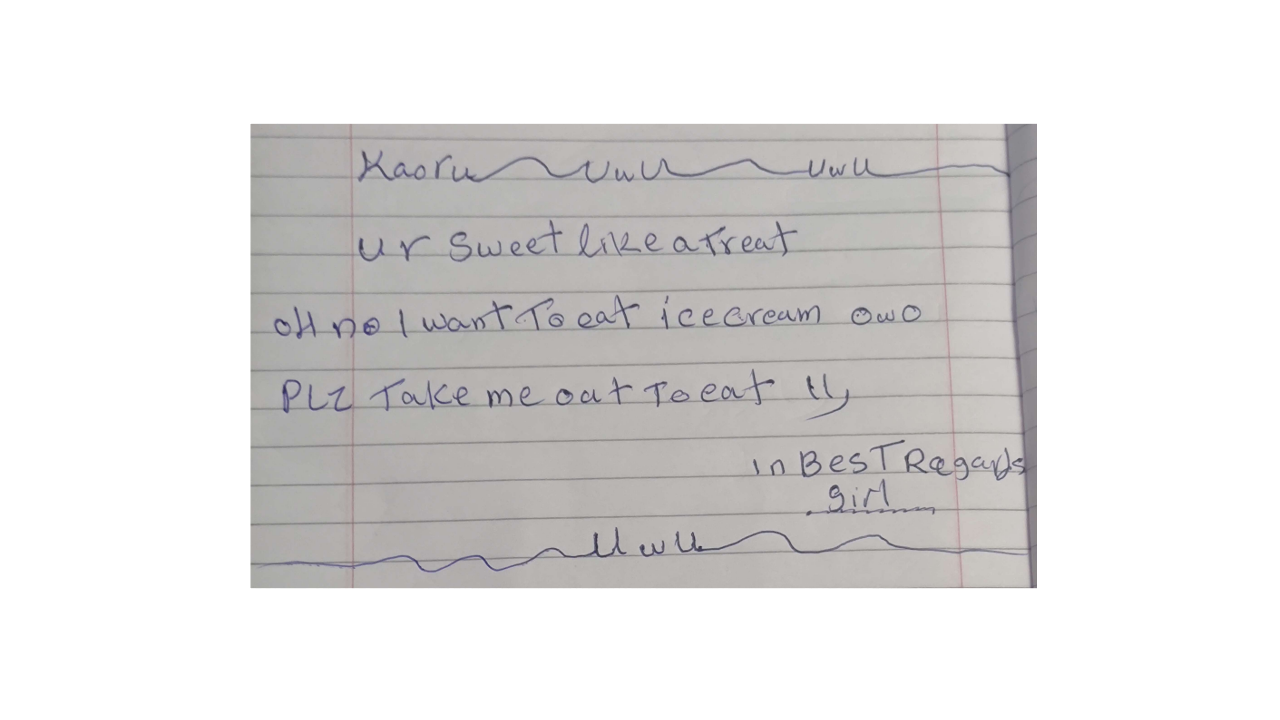 Kaoru UwU UwU
ur sweet like a Treat
oH no I want To eat icecream owo
PLZ Take me out To eat
in BesT Regards
girl
UwU